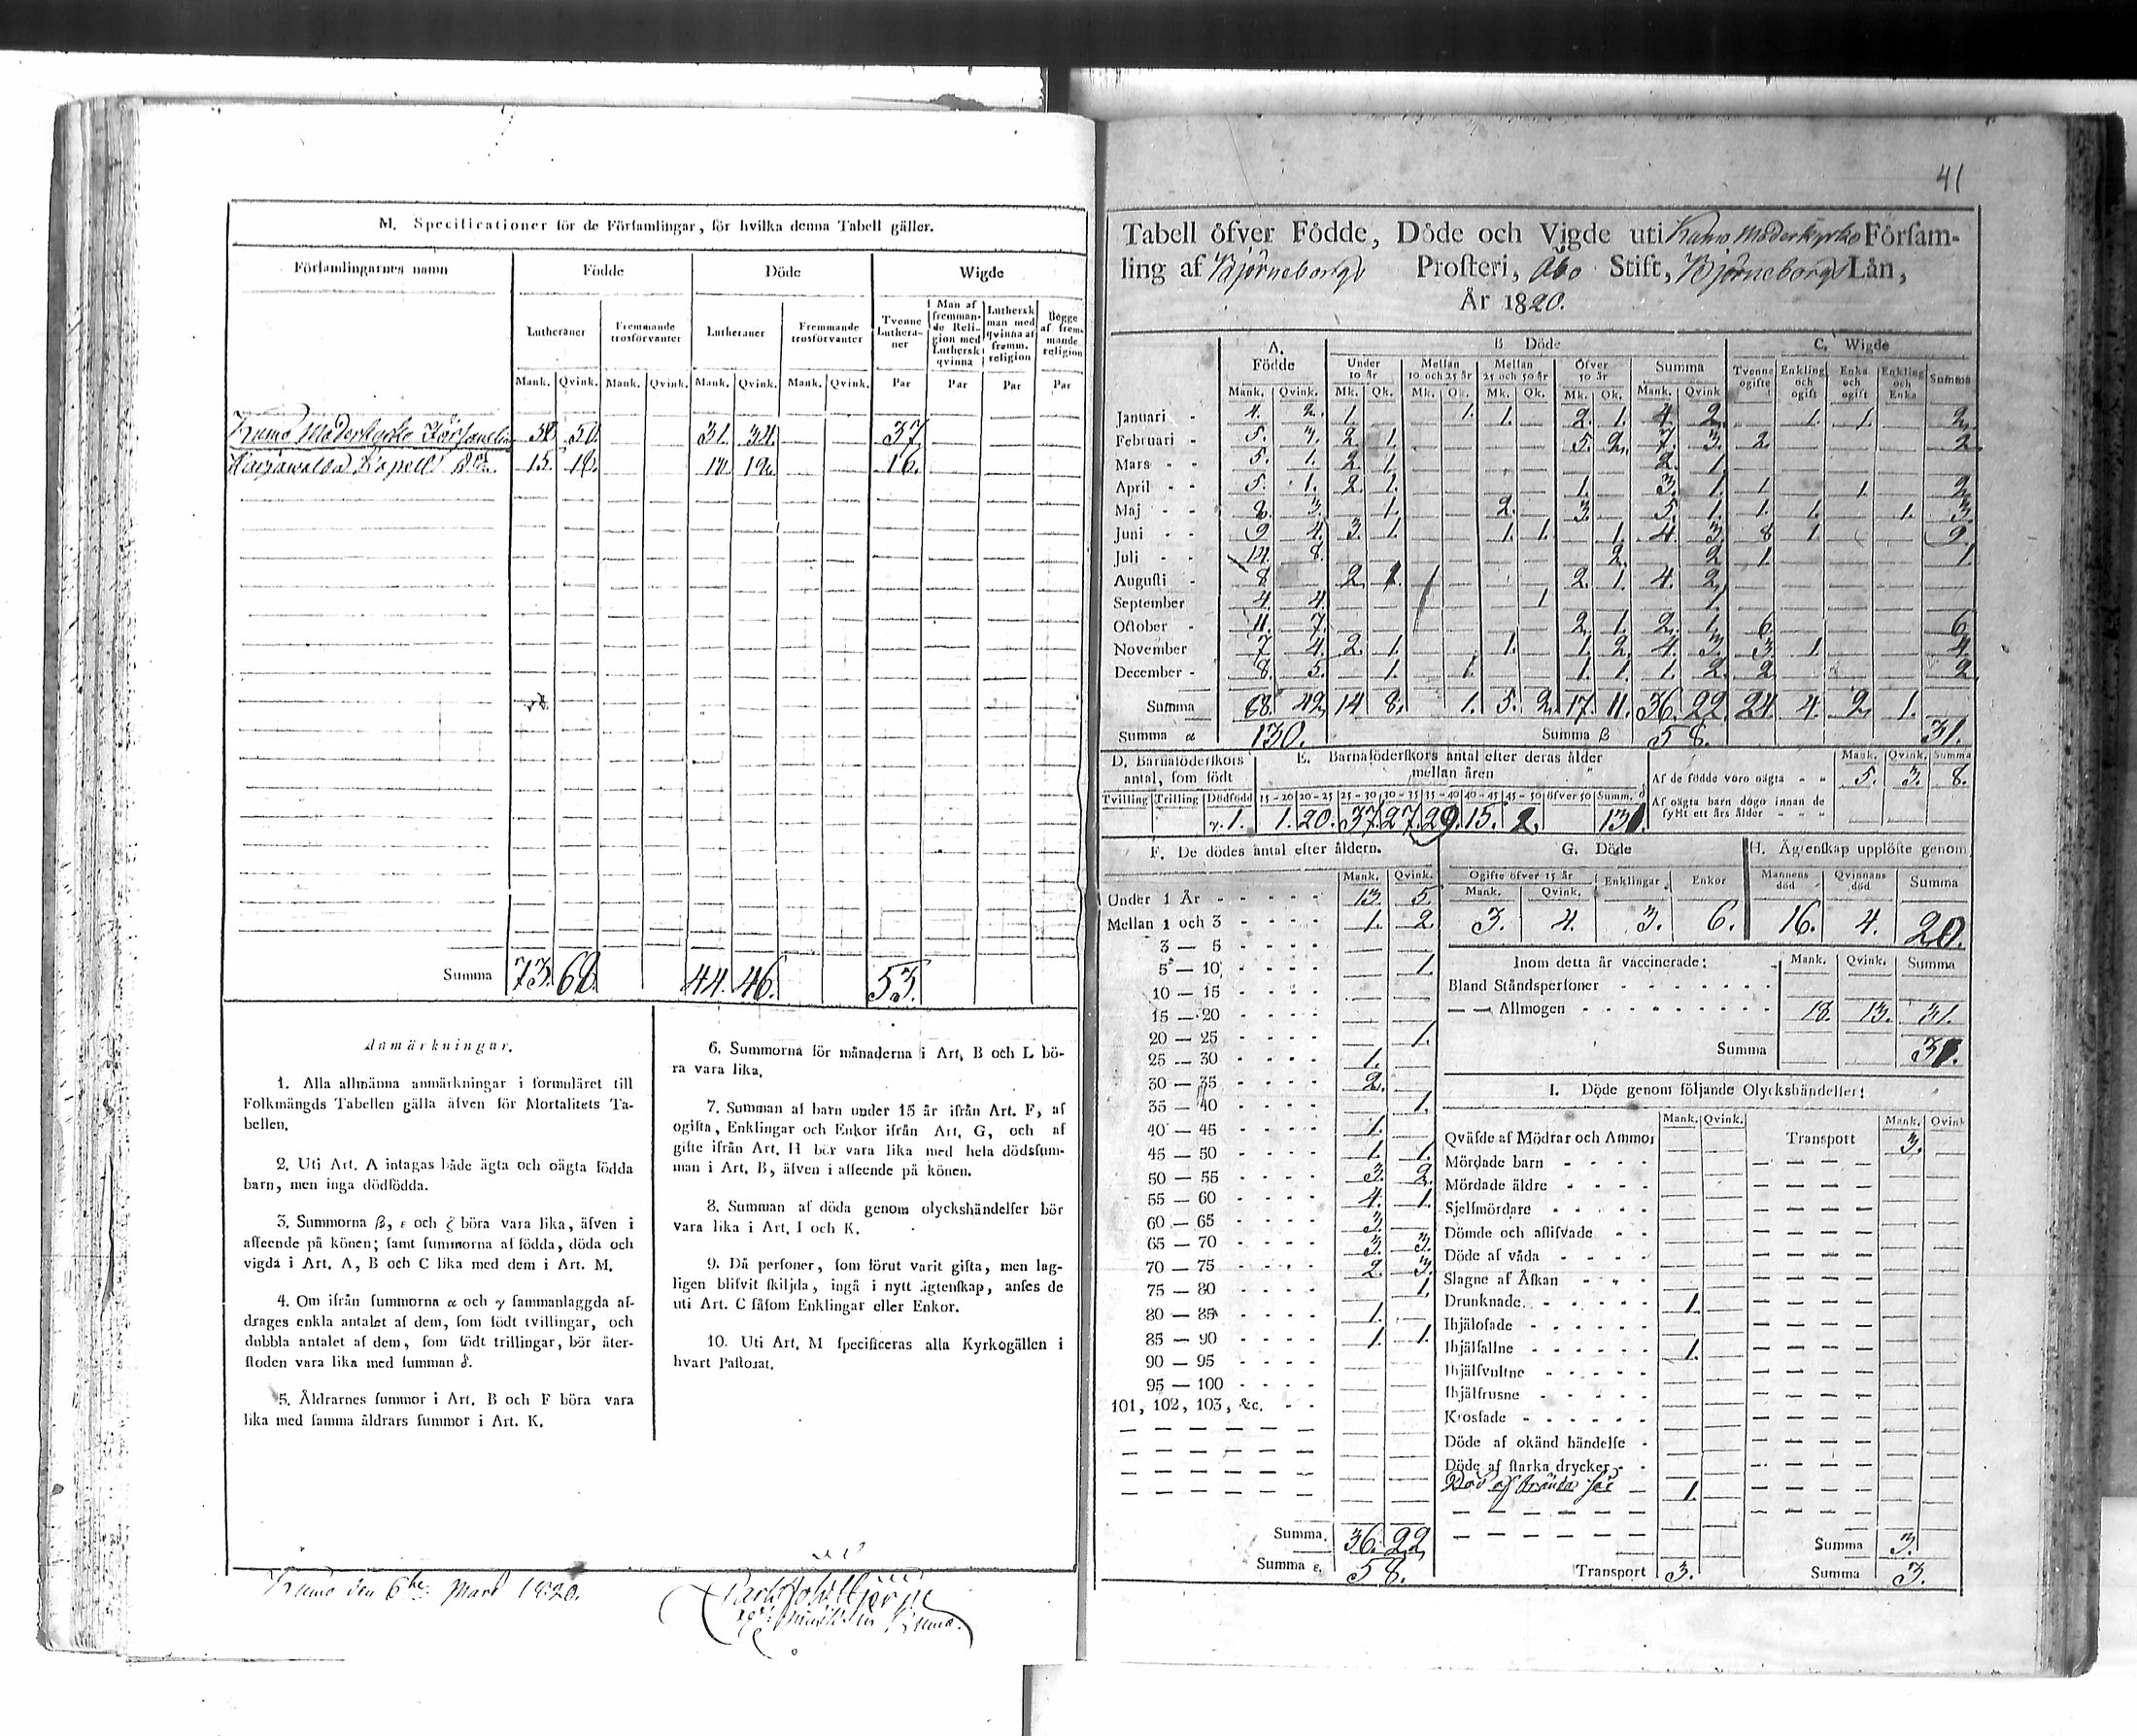 M. Specificationer för de Församlingar, för hvilka denna Tabell gäller.
Församlingarnes namn Födde Döde Wigde
Lutheraner Fremmande trosförvanter Lutheraner Fremmande trosförvanter Tvenne Lutheraner Man af fremmande Religion med Luthersk qvinna Luthersk man med qvinna af fremm. religion Begge af fremmande religion
Mank. Qvink. Mank. Qvink. Mank. Qvink. Mank. Qvink. Par Par Par Par
Kumo Moderkyrko Församling 58 50. 31. 34. 37
Kapell 15. 18. 12. 16.
Summa 73. 68. 44. 46. 53.
Anmärkningar.
1. Alla allmänna anmärkningar i formuläret till
Folkmängds Tabellen gälla äfven för Mortalitets Ta-
bellen.
2. Uti Art. A intagas både ägta och oägta födda
barn, men inga dödfödda.
3. Summorna β, ε och ζ böra vara lika, äfven i
afseende på könen; samt summorna af födda, döda och
vigda i Art. A, B och C lika med dem i Art. M.
4. Om ifrån summorna α och γ sammanlaggda af-
drages enkla antalet af dem, som födt tvillingar, och
dubbla antalet af dem, som födt trillingar, bör åter-
stoden vara lika med summan δ.
5. Åldrarnes summor i Art. B och F böra vara
lika med samma åldrars summor i Art. K.
6. Summorna för månaderna i Art. B och L bö-
ra vara lika.
7. Summan af barn under 15 år ifrån Art. F, af
ogifta, Enklingar och Enkor ifrån Art. G, och af
gifte ifrån Art. H bör vara lika med hela dödssum-
man i Art. B, äfven i afseende på könen.
8. Summan af döda genom olyckshändelser bör
vara lika i Art. I och K.
9. Då personer, som förut varit gifta, men lag-
ligen blifvit skiljda, ingå i nytt ägtenskap, anses de
uti Art. C såsom Enklingar eller Enkor.
10. Uti Art. M specificeras alla Kyrkogällen i
hvart Pastorat.
Kumo den 6te Mars 1820.
41
Tabell öfver Födde, Döde och Vigde uti Kumo Moderkyrko Församling af Björneborgs Prosteri, Åbo Stift, Björneborgs Län,
År 1820.
A. Födde B Döde C. Wigde
Under 10 år Mellan 10 och 25 år Mellan 25 och 50 år Öfver 50 år Summa Tvenne ogifte Enkling och ogift Enka och ogift Enkling och Enka Summa
Mank. Qvink. Mk. Qk. Mk. Qk. Mk. Qk. Mk. Qk. Mank. Qvink
Januari 4. 2. 1. 1. 1. 2. 1. 4 2. 1. 1. 2.
Februari 5. 3. 2. 1. 5. 2. 7 3. 2. 2.
Mars 5. 1. 2. 1. 2. 1.
April 5. 1. 2. 1. 1. 3. 1. 1. 1. 2.
Maj 8. 3. 1. 2. 3. 5. 1. 1. 1. 1. 3.
Juni 9 4. 3. 1. 1. 1. 1. 4 3 8 1. 9.
Juli 14. 8. 2. 2 1. 1.
Augusti 8. 2. 1. 2. 1. 4. 2.
September 4. 4. 1 1.
October 11. 7. 2. 1. 2. 1. 6. 6.
November 7 4. 2. 1. 1. 1. 2. 4. 3 3 1. 4.
December 8. 5. 1. 1. 1. 1. 1. 2. 2. 2.
Summa 88. 42. 14 8. 1. 5. 2. 17. 11. 36. 22. 24. 4. 2. 1.
Summa α 130. Summa β 58. 31.
D. Barnaföderskors antal, som födt E. Barnaföderskors antal efter deras ålder mellan åren
Mank. Qvink. Summa
Af de födde voro oägta 5. 3. 8.
Tvilling Trilling Dödfödd 15-20 20-25 25-30 30-35 35-40 40-45 45-50 öfver 50 Summ. δ
γ. 1. 1. 20. 37. 27. 29. 15. 2. 131.
Af oägta barn dogo innan de fyllt ett års ålder
F. De dödes antal efter åldern.
Mank. Qvink.
Under 1 År 13. 5.
Mellan 1 och 3 1. 2.
3 — 5
5 — 10 1.
10 — 15
15 — 20
20 — 25 1.
25 — 30 1.
30 — 35 2.
35 — 40 1.
40 — 45 1.
45 — 50 1. 1.
50 — 55 3. 2.
55 — 60 4. 1.
60 — 65 3.
65 — 70 3. 3.
70 — 75 2. 3.
75 — 80 1.
80 — 85 1.
85 — 90 1. 1.
90 — 95
95 — 100
101, 102, 103, &c.
Summa. 36. 22
Summa ε. 58.
G. Döde H. Ägtenskap upplöste genom
Ogifte öfver 15 år Enklingar Enkor Mannens död Qvinnans död Summa
Mank. Qvink.
3. 4. 3. 6. 16. 4. 20.
Inom detta år vaccinerade: Mank. Qvink. Summa
Bland Ståndspersoner
— — Allmogen 18. 13. 31.
Summa 31.
I. Döde genom följande Olyckshändelser:
Mank. Qvink. Mank. Qvink
Qväfde af Mödrar och Ammor Transport 3.
Mördade barn
Mördade äldre
Sjelfmördare
Dömde och aflifvade
Döde af våda
Slagne af Åskan
Drunknade 1.
Ihjälosade
Ihjälfallne 1.
Ihjälsvultne
Ihjälfrusne
Krossade
Döde af okänd händelse
Döde af starka drycker
Död af brända sår 1.
Summa 3.
Transport 3. Summa 3.